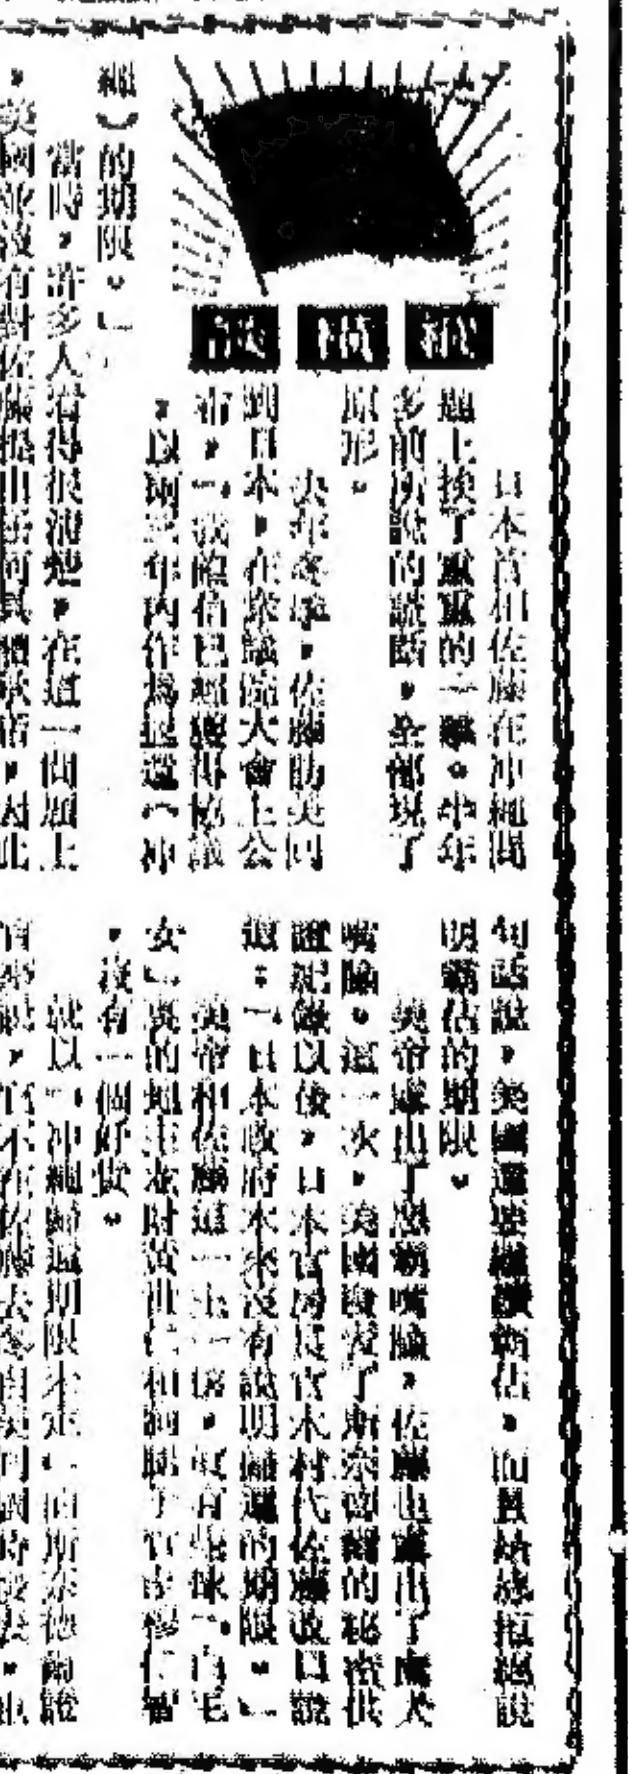 日本首相佐藤在冲繩問
題上挨了重重的一。半年
多前所說的謊話,全部現了
原形。
去年冬季,佐藤訪美回
到日本,在衆議院大會上公
布,「我確信已經獲得協議
,以兩三年內作爲歸還(冲
繩)的期限。」
當時,許多人看得很清楚,在這一問題上
,美國並沒有對佐藤提出任何具體承諾,因此
句話說,美國還要繼續霸佔,而且始終拒絕說
明霸佔的期限。
美帝露出了惡霸嘴臉,佐藤也露出了鷹犬
嘴臉。這一次,美國發表了斯奈德爾的秘密供
證紀錄以後,日本官房長官木村代佐藤改口說
道:「日本政府本來沒有說明歸還的期限。」
美帝和佐藤這一主一僕,有些像「白毛
女」裏的地主老財黃世仁和狗腿子管家穆仁智
,沒有一個好貨。
就以「冲繩歸還期限未定」的斯奈德爾證
不在佐藤去冬自美回國時發表,